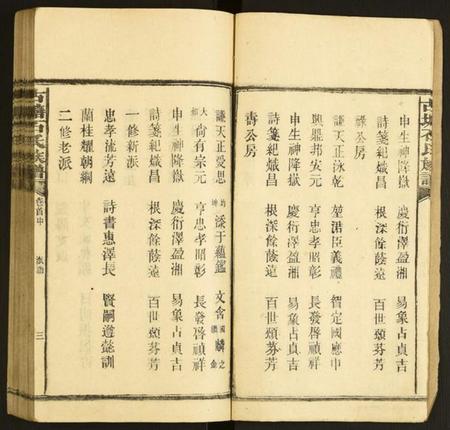 古塘石氏族譜
申生神降嶽 慶衍澤盈湘 易象占貞吉
詩箋紀熾昌 根深餘蔭遠 百世頌芬芳
祿公房
謙天正泳乾 堃涒臣義禮 智定國應中
興賜邦安元 亨忠孝昭彰 長發啓禎祥
申生神降嶽 慶衍澤盈湘 易象占貞吉
詩箋紀熾昌 根深餘蔭遠 百世頌芬芳
壽公房
謙天正愛思 添于蘊鑑 文含 麟之
大 尙有宗元 亨忠孝昭彰 長發啓禎祥
申生神降嶽 慶衍澤盈湘 易象占貞吉
詩箋紀熾昌 根深餘蔭遠 百世頌芬芳
一修新派
忠孝流芳遠 詩書惠澤長 賢嗣遵懿訓
蘭桂耀朝綱
二修老派
古塘石氏族譜 卷首中 派語 三